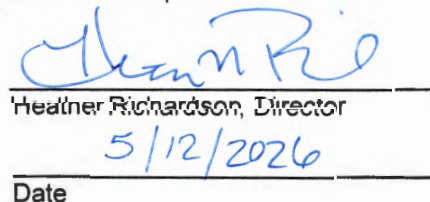 Heather Richardson, Director
5/12/2026
Date